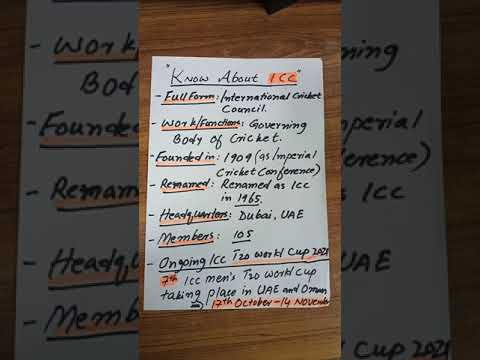 "Know About ICC"
- Full Form: International Cricket
Council.
- Work/Functions: Governing
Body of Cricket.
- Founded in: 1909 (as Imperial
Cricket Conference)
- Renamed: Renamed as Icc
in 1965.
- Headquarters: Dubai, UAE
- Members: 105
- Ongoing Icc T20 World Cup 2021
7th Icc men's T20 World Cup
taking place in UAE and Oman
17th October - 14 November